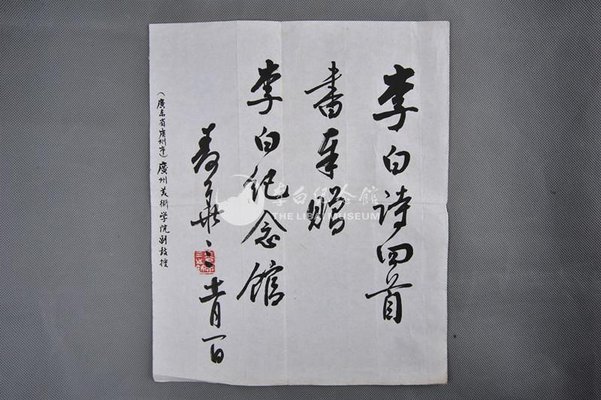 李白诗四首
书奉赠
李白纪念馆
（廣东省廣州市）廣州美術学院副教授
李白纪念馆
THE LIBAI MUSEUM